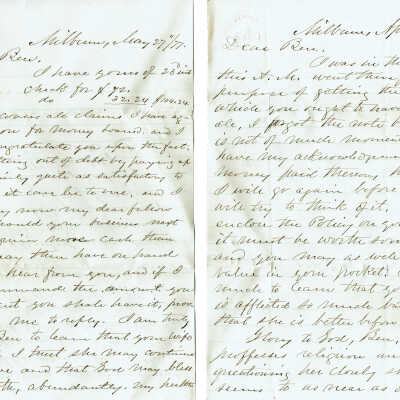 Milburn, May 27th/71.
Ben.
I have yours of 25 inst
check for $72.
do 22.24 from 24.
covers all claims I have aga
for money loaned, and I
congratulate you upon the fact.
ting out of debt by paying up
quite as satisfactory to
it can be to me, and I
say now my dear fellow
should your business not
require more cash than
may then have on hand
hear from you, and if I
command the amount you
you shall have it, prov
me to reply. I am truly
Ben to learn that your wife
I trust she may continue
and that God may bless
abundantly. My health
Milburn, Ap
Dear Ben,
I was in th
this A.M. went thing
purpose of getting the
which you ought to have
ale, I forgot the note b
is not of much momen
have my acknowledgemen
money paid thereon, h
I will go again before
will try to think of it.
the Policy on yo
it must be worth som
and you may as well
value in your pocket.
much to learn that yo
is afflicted so much bu
that she is better befor
Glory to God, Ben,
professes religion an
questioning her closely s
seems to as near as I